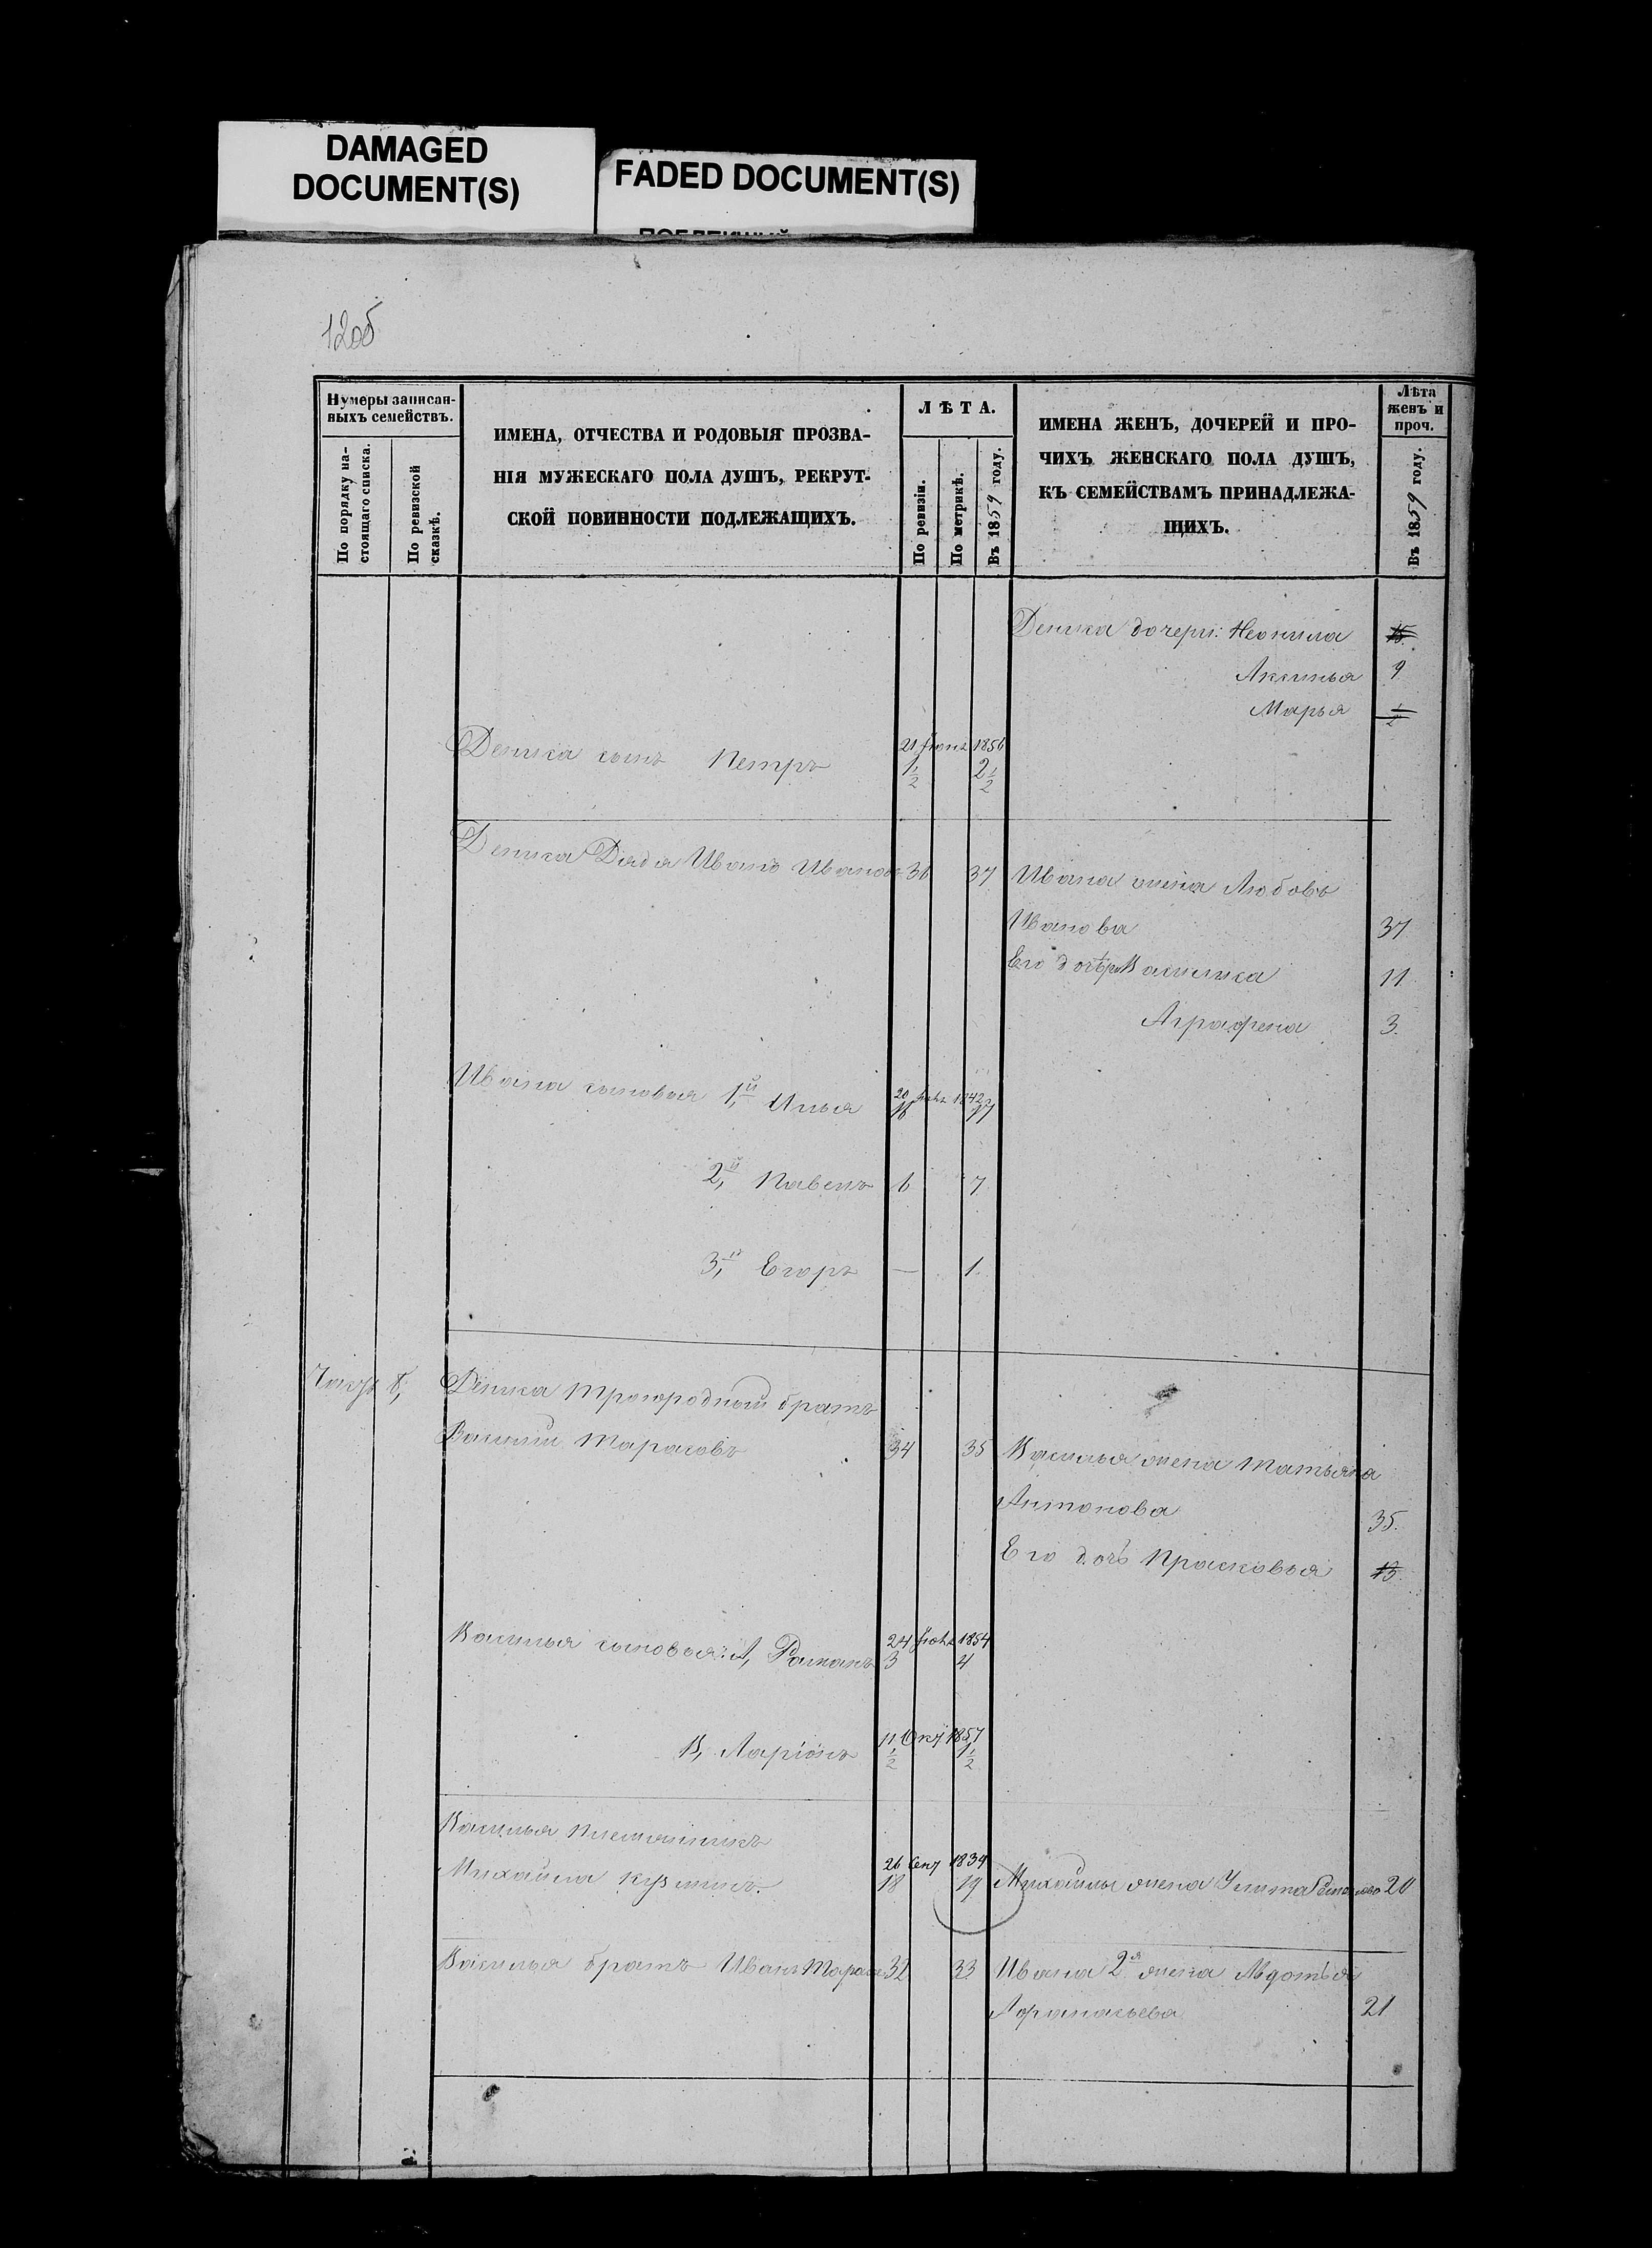 DAMAGED
DOCUMENT(S)
FADED DOCUMENT(S)
12об
Нумеры записан-
ныхъ семействъ.
По порядку на-
стоящаго списка.
По ревизской
сказкѣ.
ИМЕНА, ОТЧЕСТВА И РОДОВЫЯ ПРОЗВА-
НІЯ МУЖЕСКАГО ПОЛА ДУШЪ, РЕКРУТ-
СКОЙ ПОВИННОСТИ ПОДЛЕЖАЩИХЪ.
ЛѢТА.
По ревизіи.
По метрикѣ.
Въ 1859 году.
ИМЕНА ЖЕНЪ, ДОЧЕРЕЙ И ПРО-
ЧИХЪ ЖЕНСКАГО ПОЛА ДУШЪ,
КЪ СЕМЕЙСТВАМЪ ПРИНАДЛЕЖА-
ЩИХЪ.
Лѣта
женъ и
проч.
Въ 1859 году.
Дениса дочери: Неонила 15.
Аксинья 9
Марья 1/2
21 Іюня 1856
Дениса сынъ Петръ 1 1/2 2 1/2
Дениса Дядя Иванъ Ивановъ 36 37 Ивана жена Любовь
Иванова 37
Его дочери Василиса 11
Аграфена 3.
20 1842
Ивана сыновья 1й Илья 16 17
2й Павелъ 6 7
3й Егоръ — 1.
8, Дениса троюродный братъ
Василий Тарасовъ 34 35 Василья жена Татьяна
Антонова 35.
Его дочь Прасковья 13.
24 1854
Василья сыновья: А, Романъ 3 4
11 Окт 1857
В, Ларіонъ 1/2 1 1/2
Василья племянникъ
26 Сент 1839
Михайла Кузминъ. 18 19 Михайлы жена Улита 20
Василья братъ Иванъ Тарасовъ 32 33 Ивана 2я жена Авдотья
Афанасьева 21